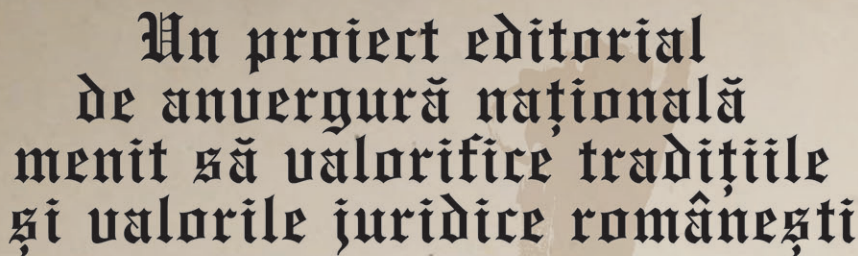 Un proiect editorial
de anvergură națională
menit să valorifice tradițiile
și valorile juridice românești